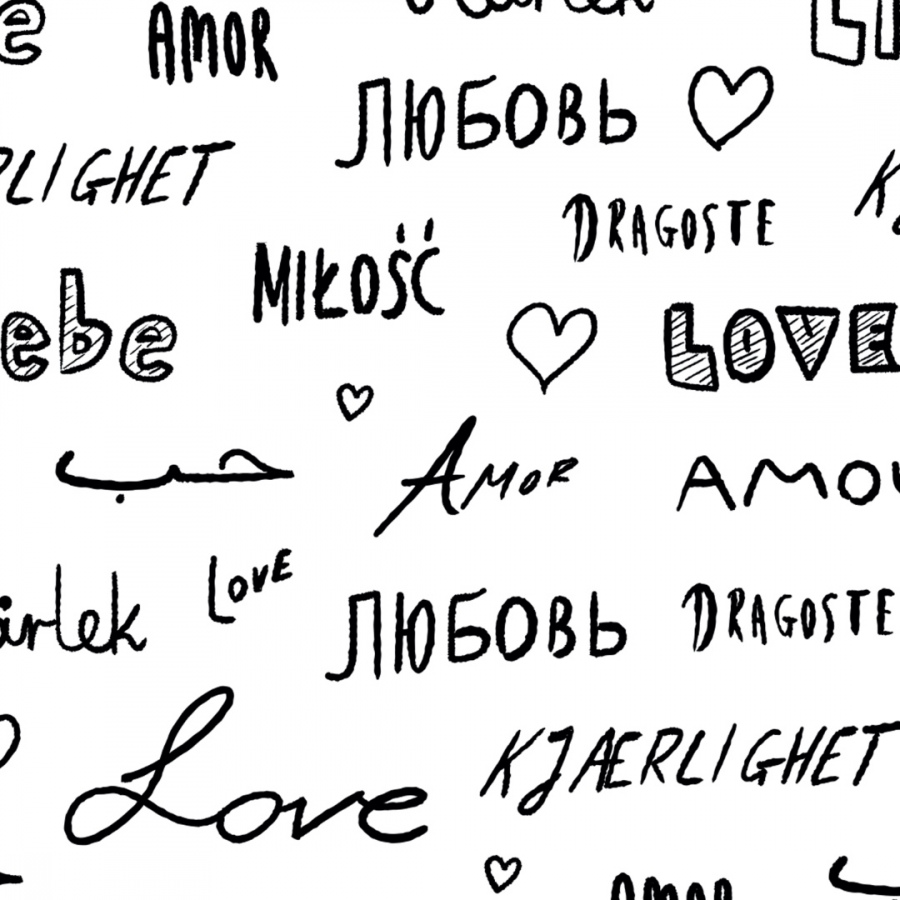 AMOR
ЛЮБОВЬ
RLIGHET
DRAGOSTE
MIŁOŚĆ
ebe
LOVE
حب
AMOR
AMOU
ärlek
LOVE
ЛЮБОВЬ
DRAGOSTE
Love
KJÆRLIGHET
AMOR